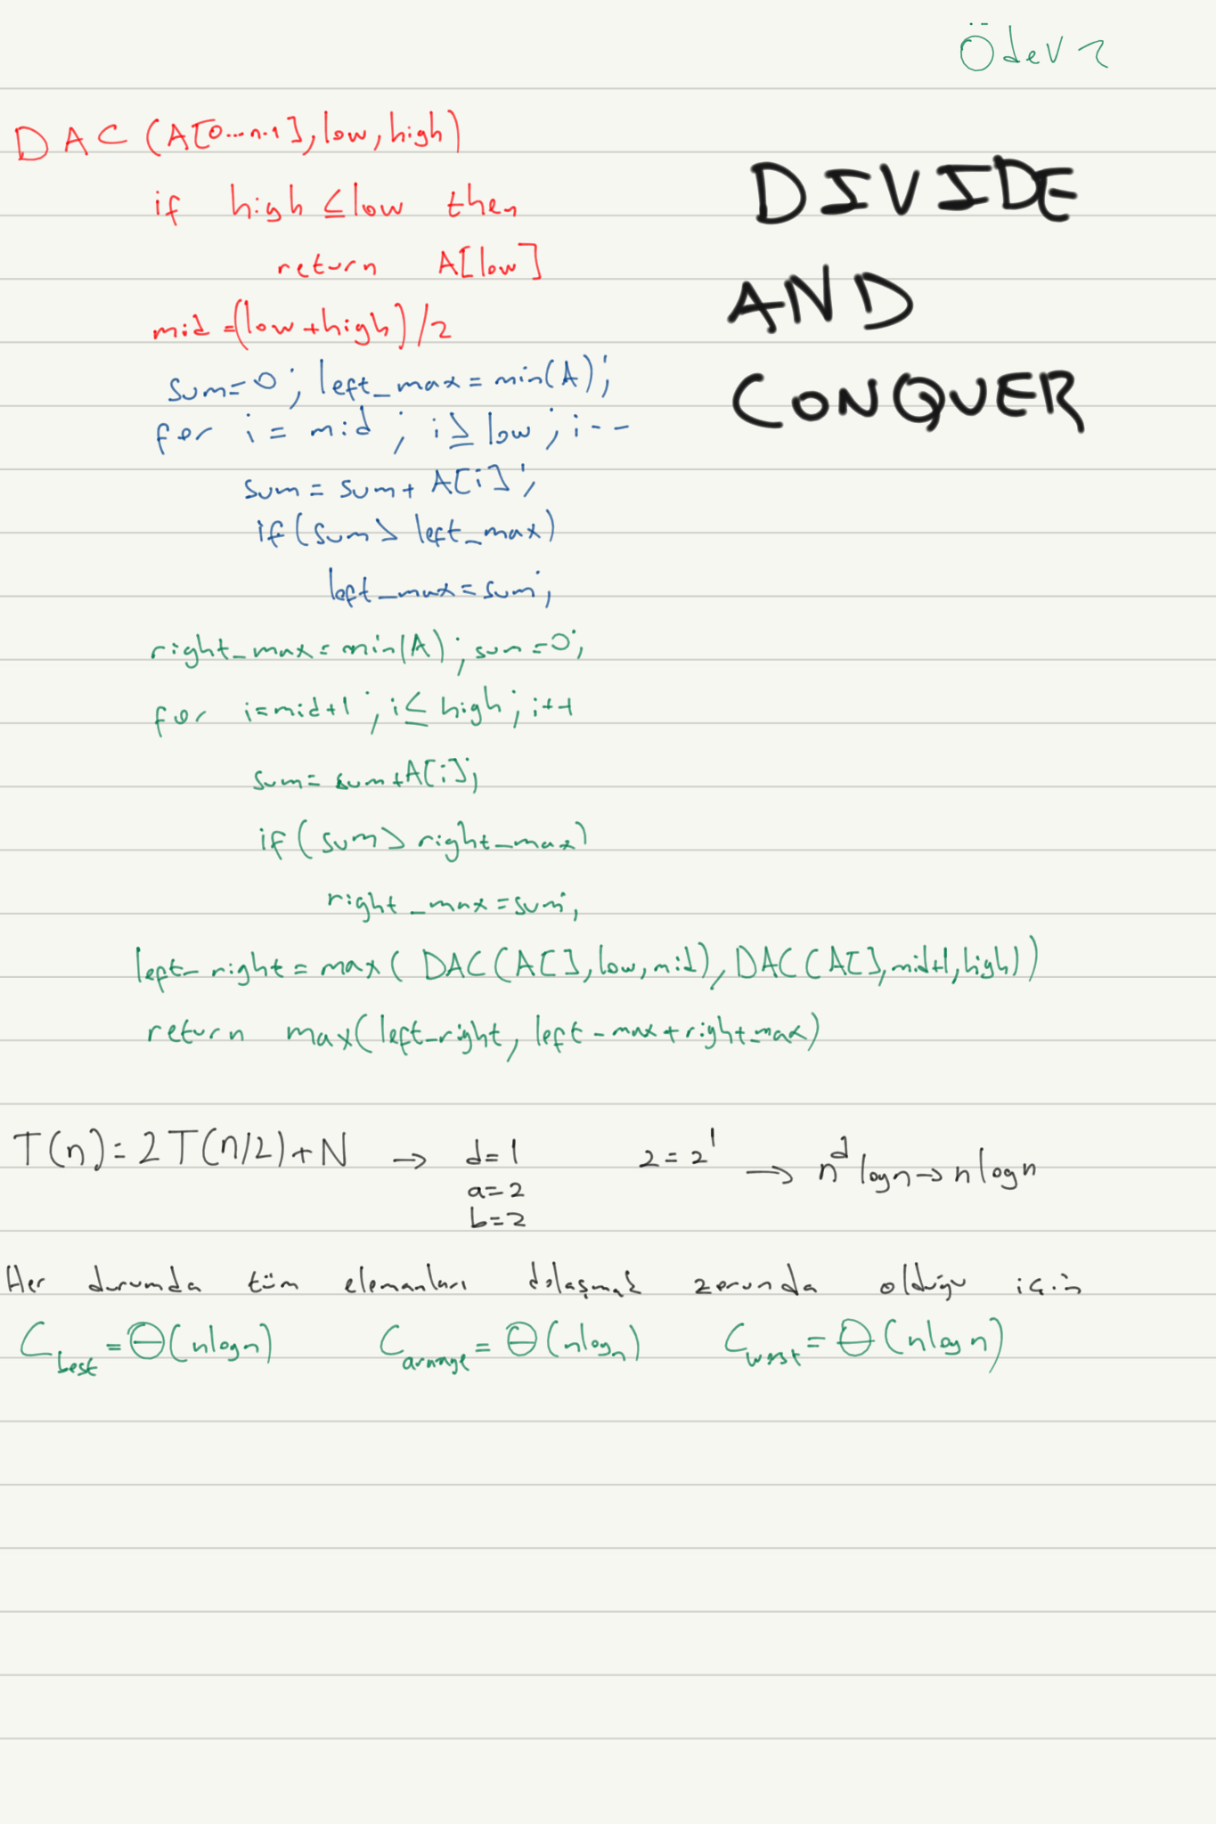 Ödev 2
DAC (A[0...n-1], low, high)
if high ≤ low then
return A[low]
mid = (low + high) / 2
DIVIDE
AND
CONQUER
sum = 0 ; left_max = min(A) ;
for i = mid ; i ≥ low ; i--
sum = sum + A[i] ;
if (sum > left_max)
left_max = sum ;
right_max = min(A) ; sum = 0 ;
for i = mid+1 ; i ≤ high ; i++
sum = sum + A[i] ;
if ( sum > right_max)
right_max = sum ;
left_right = max ( DAC (A[], low, mid), DAC (A[], mid+1, high))
return max(left_right, left_max + right_max)
T(n) = 2T(n/2) + N → d=1 2 = 2^1 → n^d logn → nlogn
a=2
b=2
Her durumda tüm elemanları dolaşmak zorunda olduğu için
C_best = Θ(nlogn) C_average = Θ(nlogn) C_worst = Θ(nlogn)